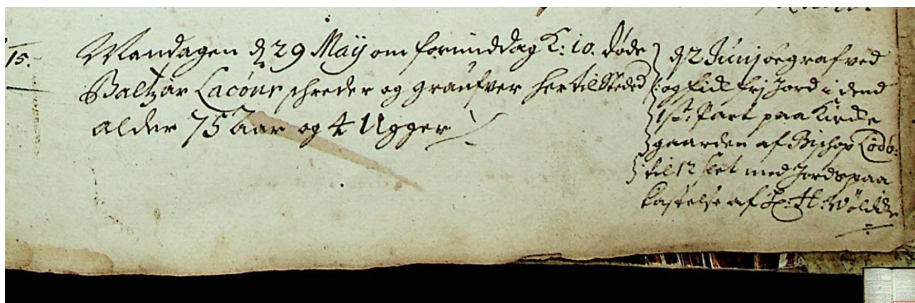 15.
Mandagen d 29 Maÿ om formiddag K: 10. døde
Baltzar Lacour schreder og graufver her til Steded
alder 75 aar og 4 Uger
d 2 Junij begrafved
og fik frj Jord i dend
1ste Part paa Kirke
gaarden af Bishop
til 12 slet med Jords paa
kastelse af H: